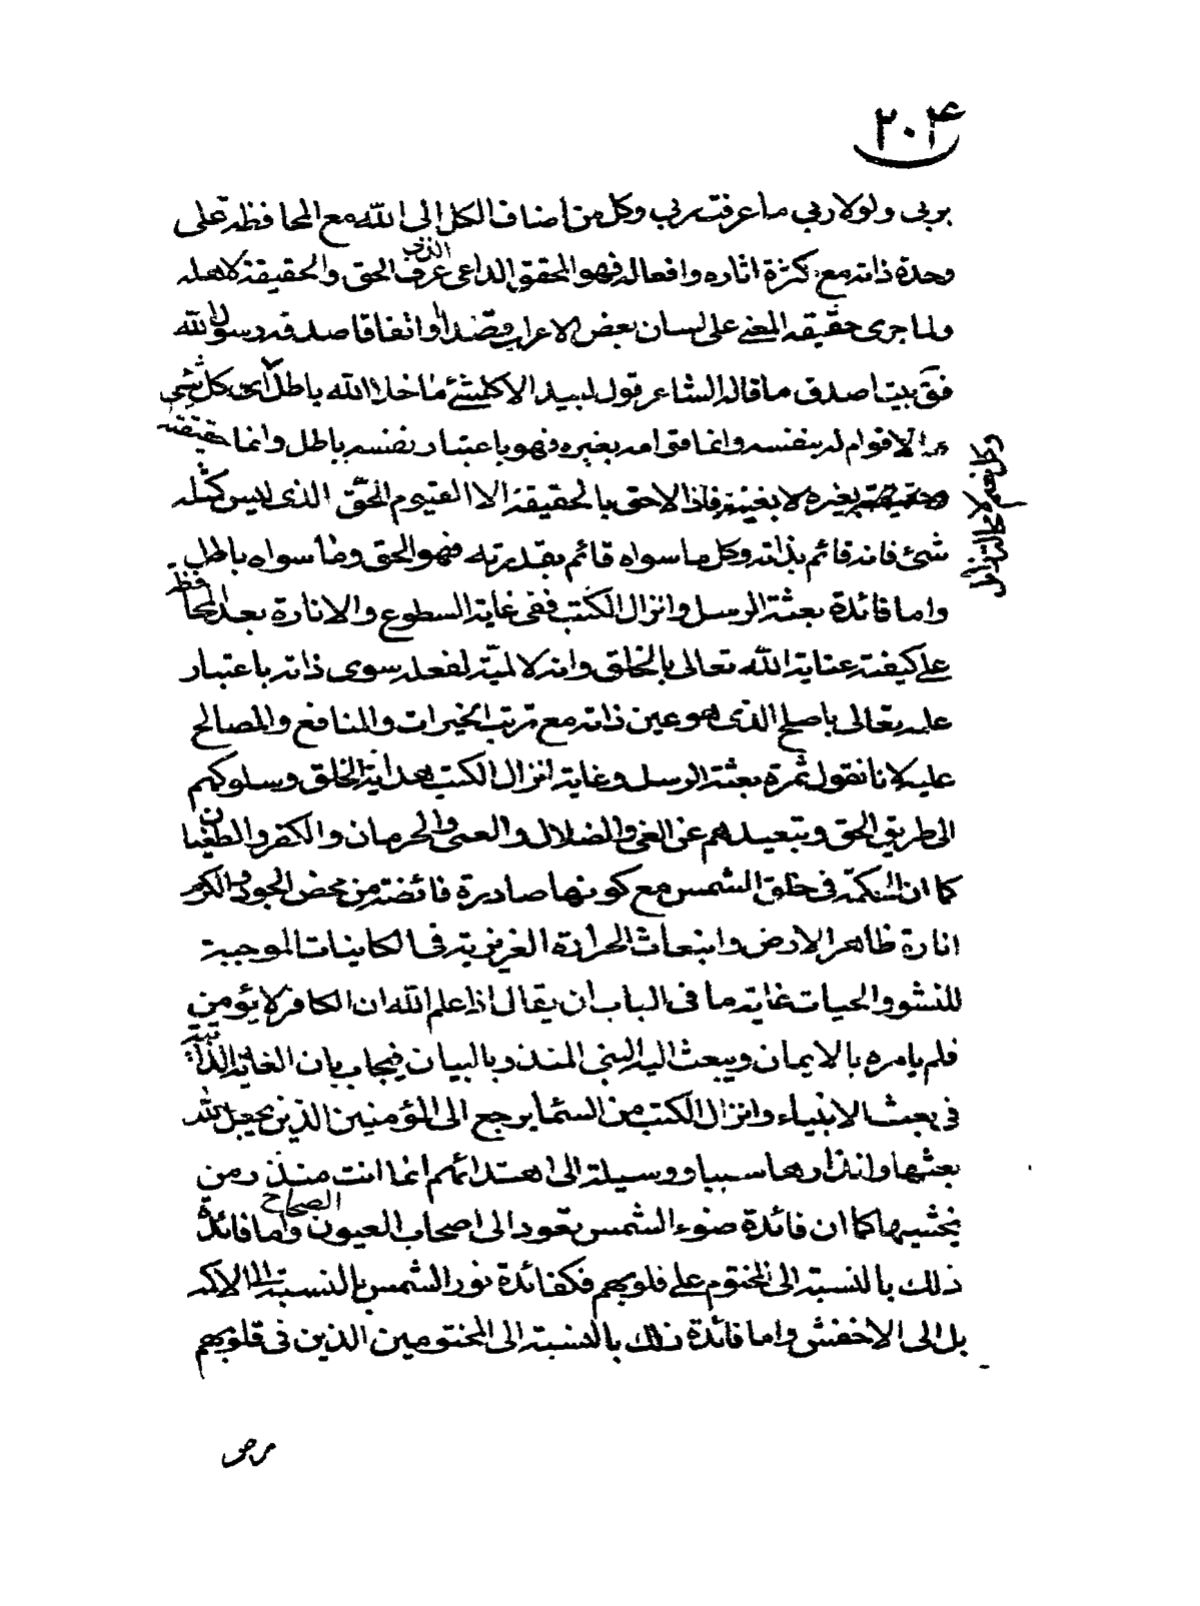 ٢٠٤
بربى ولولا ربي ما عرفت ربي وكل من اضاف الكل الى الله مع المحافظة على
وحدة ذاته مع كثرة اثاره وافعاله فهو المحقق الذى عرف الحق والحقيقة لاهله
ولما جرى حقيقة المعنى على لسان بعض الاعراب قصدا او اتفاقا صدقه رسول الله
فق بيتا صدق ما قاله الشاعر قول لبيد الاكلشئ ما خلا الله باطل اى كل شئ
وكل نعيم لا محالة زائل
لا قوام له بنفسه وانما قوامه بغيره فهو باعتبار نفسه باطل وانما حقيقته
بغيره لا بنفسه فاذا لاحق بالحقيقة الا القيوم الحق الذى ليس كمثله
شئ فانه قائم بذاته وكل ما سواه قائم بقدرته فهو الحق وما سواه باطل
واما فائدة بعثة الرسل وانزال الكتب ففى غاية السطوع والانارة بعد المحافظة
على كيفية عناية الله تعالى بالخلق وانه لا لمية لفعله سوى ذاته باعتبار
علمه تعالى باصلح الذى هو عين ذاته مع ترتب الخيرات والمنافع والمصالح
عليه لانا نقول ثمرة بعثة الرسل وغاية انزال الكتب هداية الخلق وسلوكهم
الى طريق الحق وتبعيدهم عن الغى والضلال والعمى والحرمان والكفر والطغيان
كما ان الحكمة فى خلق الشمس مع كونها صادرة فائضة من محض الجود والكرم
انارة ظاهر الارض وانبعاث الحرارة الغريزية فى الكاينات الموجبة
للنشو والحيات غاية ما فى الباب ان يقال اذا علم الله ان الكافر لا يؤمن
فلم يامره بالايمان ويبعث اليه النبى المنذر بالبيان فيجاب بان الغاية الذاتية
فى بعث الانبياء وانزال الكتب من السماء يرجع الى المؤمنين الذين يجعل الله
بعثها وانذارها سببا ووسيلة الى اهتدائهم انما انت منذر من
يخشيها كما ان فائدة ضوء الشمس يعود الى اصحاب العيون الصحاح واما فائدة
ذلك بالنسبة الى المختوم على قلوبهم فكفائدة نور الشمس بالنسبة الى الاكمه
بل الى الاخفش واما فائدة ذلك بالنسبة الى المختومين الذين فى قلوبهم
مرض